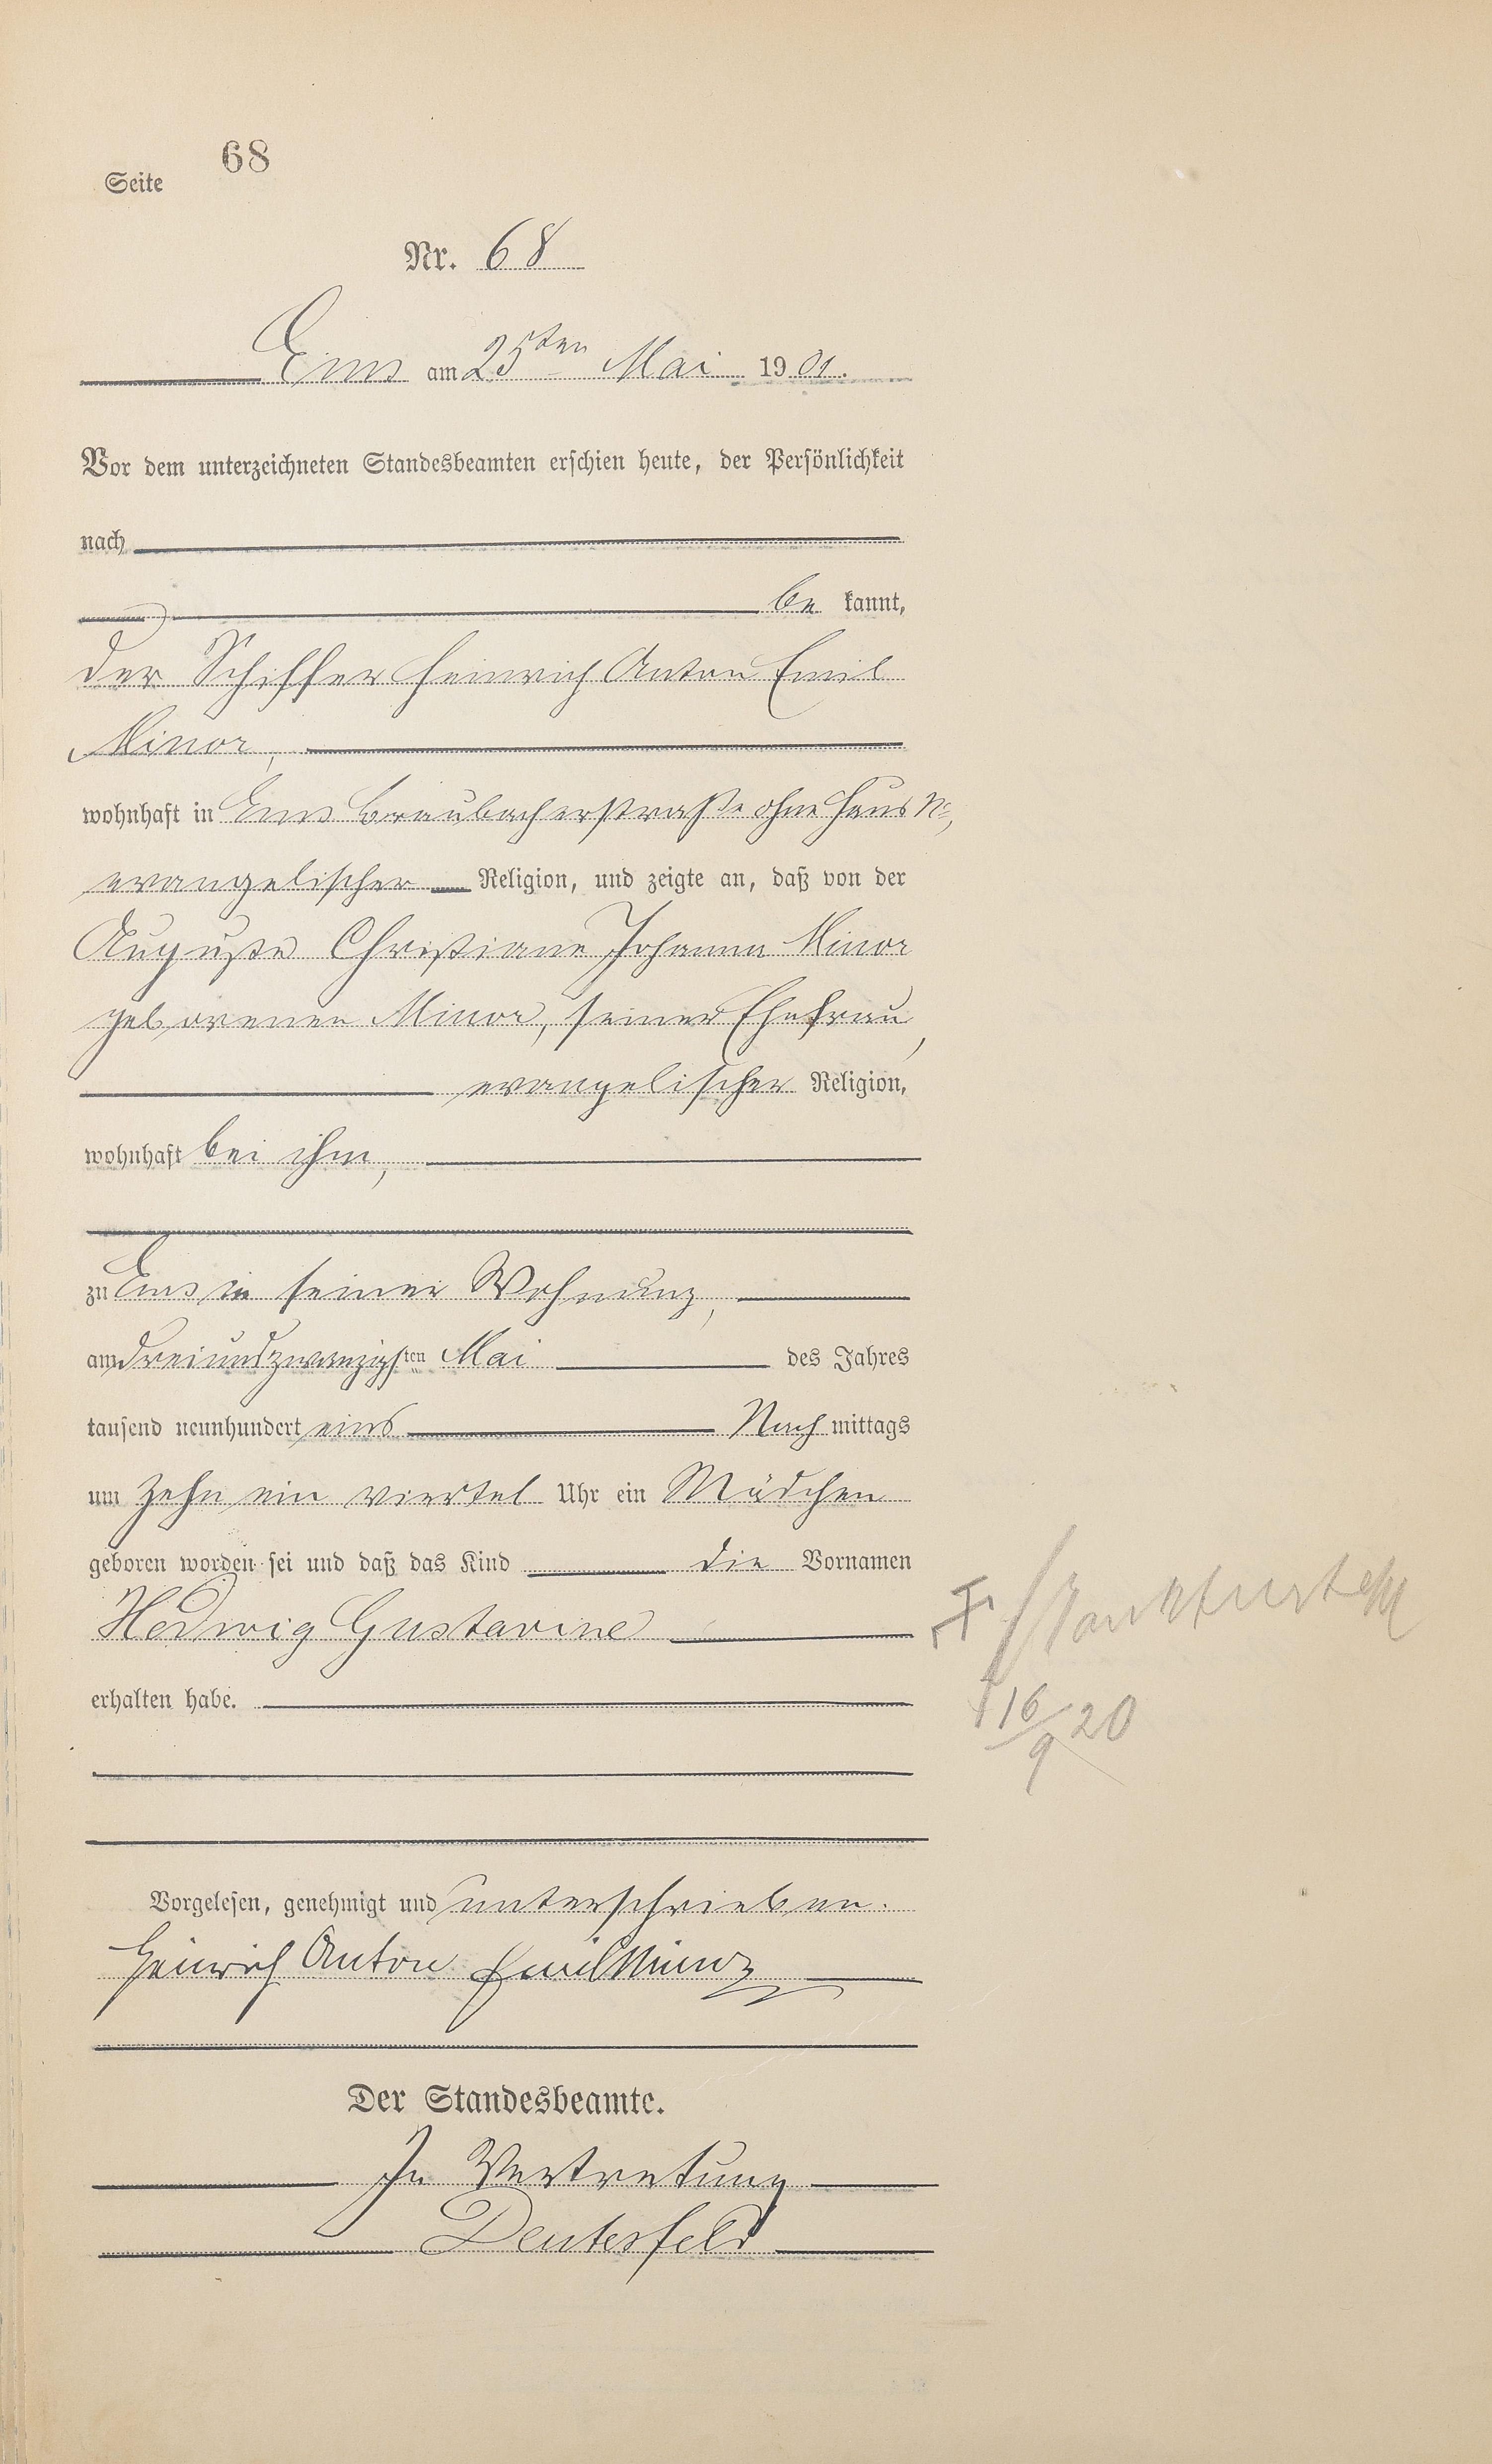 68
Seite
Nr. 68
Ems am 25ten Mai 1901.
Vor dem unterzeichneten Standesbeamten erschien heute, der Persönlichkeit
nach
be kannt,
der Schiffer Heinrich Anton Emil
Minor,
wohnhaft in Ems Braubacherstraße ohne Haus No,
evangelischer Religion, und zeigte an, daß von der
Auguste Christiane Johanna Minor
geborenen Minor, seiner Ehefrau,
evangelischer Religion,
wohnhaft bei ihm,
zu Ems in seiner Wohnung,
am dreiundzwanzigsten Mai des Jahres
tausend neunhundert eins Nach mittags
um zehn ein viertel Uhr ein Mädchen
geboren worden sei und daß das Kind die Vornamen
Hedwig Gustavine
erhalten habe.
† 16/9 20
Vorgelesen, genehmigt und unterschrieben.
Heinrich Anton Emil Minor
Der Standesbeamte.
In Vertretung